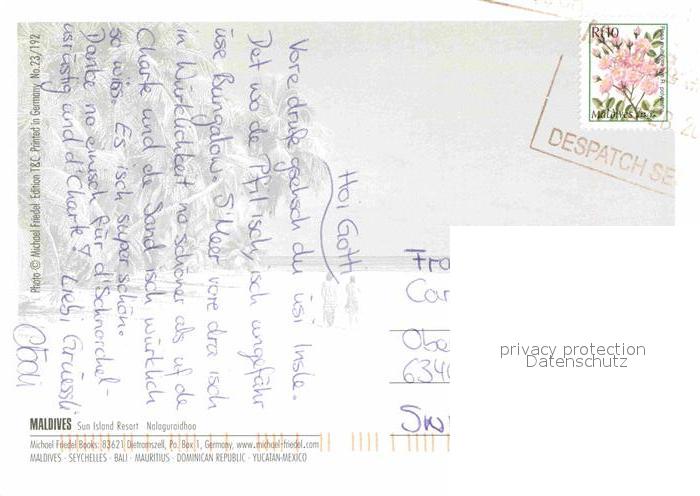 Hoi Gotti
Vore druf gsehsch du üsi Insle.
Det wo de Pfil isch, isch ungefähr
üse Bungalow. S'Meer vore dra isch
in Würklichkeit no schöner als uf de
Charte und de Sand isch würklich
so wiss. Es isch super schön.
Danke no einisch für d'Schnorchel-
usrüstig und d'Charte! Liebi Grüessli
6340
Rf10
Maldives
DESPATCH SE
privacy protection
Datenschutz
Photo © Michael Friedel · Edition T&C · Printed in Germany, No.23/192
MALDIVES Sun Island Resort Nalaguraidhoo
Michael Friedel Books: 83621 Dietramszell, Po. Box 1, Germany, www.michael-friedel.com
MALDIVES · SEYCHELLES · BALI · MAURITIUS · DOMINICAN REPUBLIC · YUCATAN-MEXICO